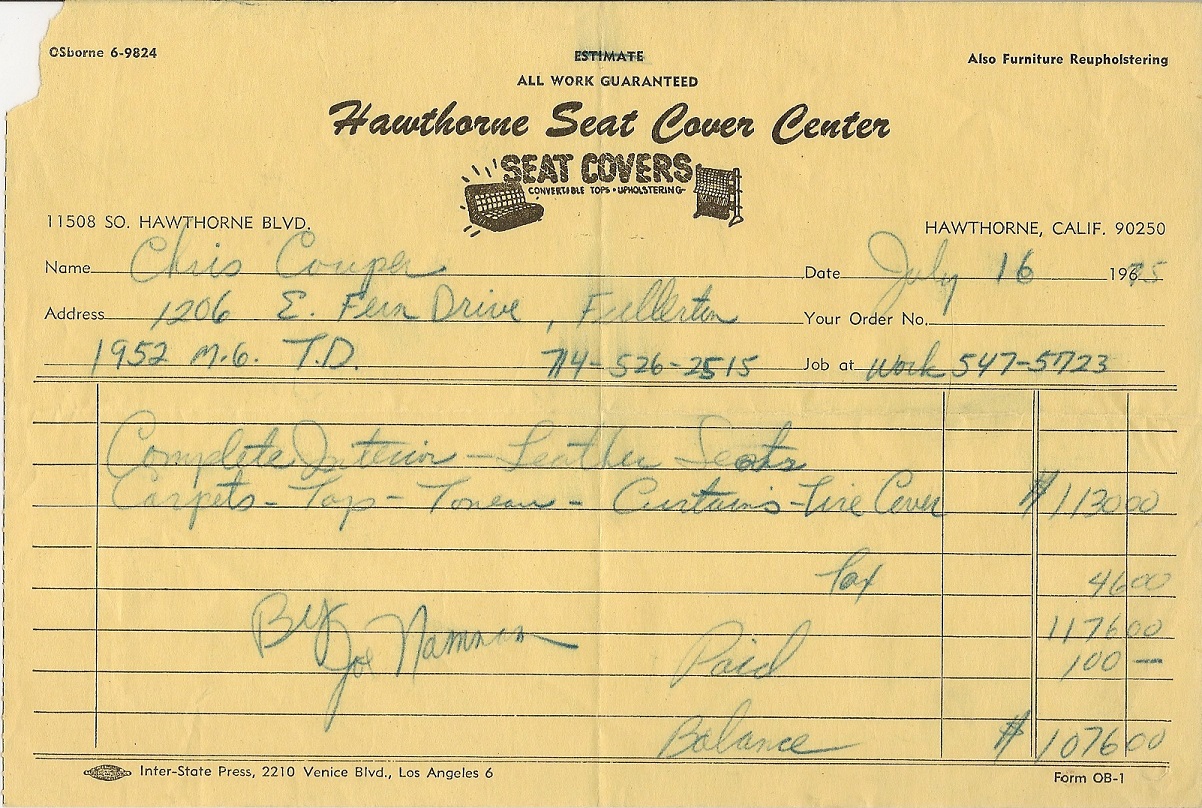 OSborne 6-9824
ESTIMATE
Also Furniture Reupholstering
ALL WORK GUARANTEED
Hawthorne Seat Cover Center
SEAT COVERS
CONVERTIBLE TOPS • UPHOLSTERING
11508 SO. HAWTHORNE BLVD.
HAWTHORNE, CALIF. 90250
Name Chris Couper Date July 16 1975
Address 1206 E. Fern Drive, Fullerton Your Order No.
1952 M.G. T.D. 714-526-2515 Job at Work 547-5723
Complete Interior - Leather Seats
Carpets - Top - Toneau - Curtains - Tire Cover $ 1130 00
Tax 46 00
1176 00
By Joe Paid 100 —
Balance $ 1076 00
Inter-State Press, 2210 Venice Blvd., Los Angeles 6
Form OB-1